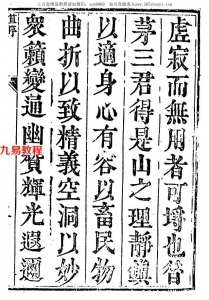 虛寂而無用者可埒也昔
茅三君得是山之理靜鎮
以適身心有容以畜民物
曲折以致精義空洞以妙
衆籟變通幽質輝光遐邇
九易教程